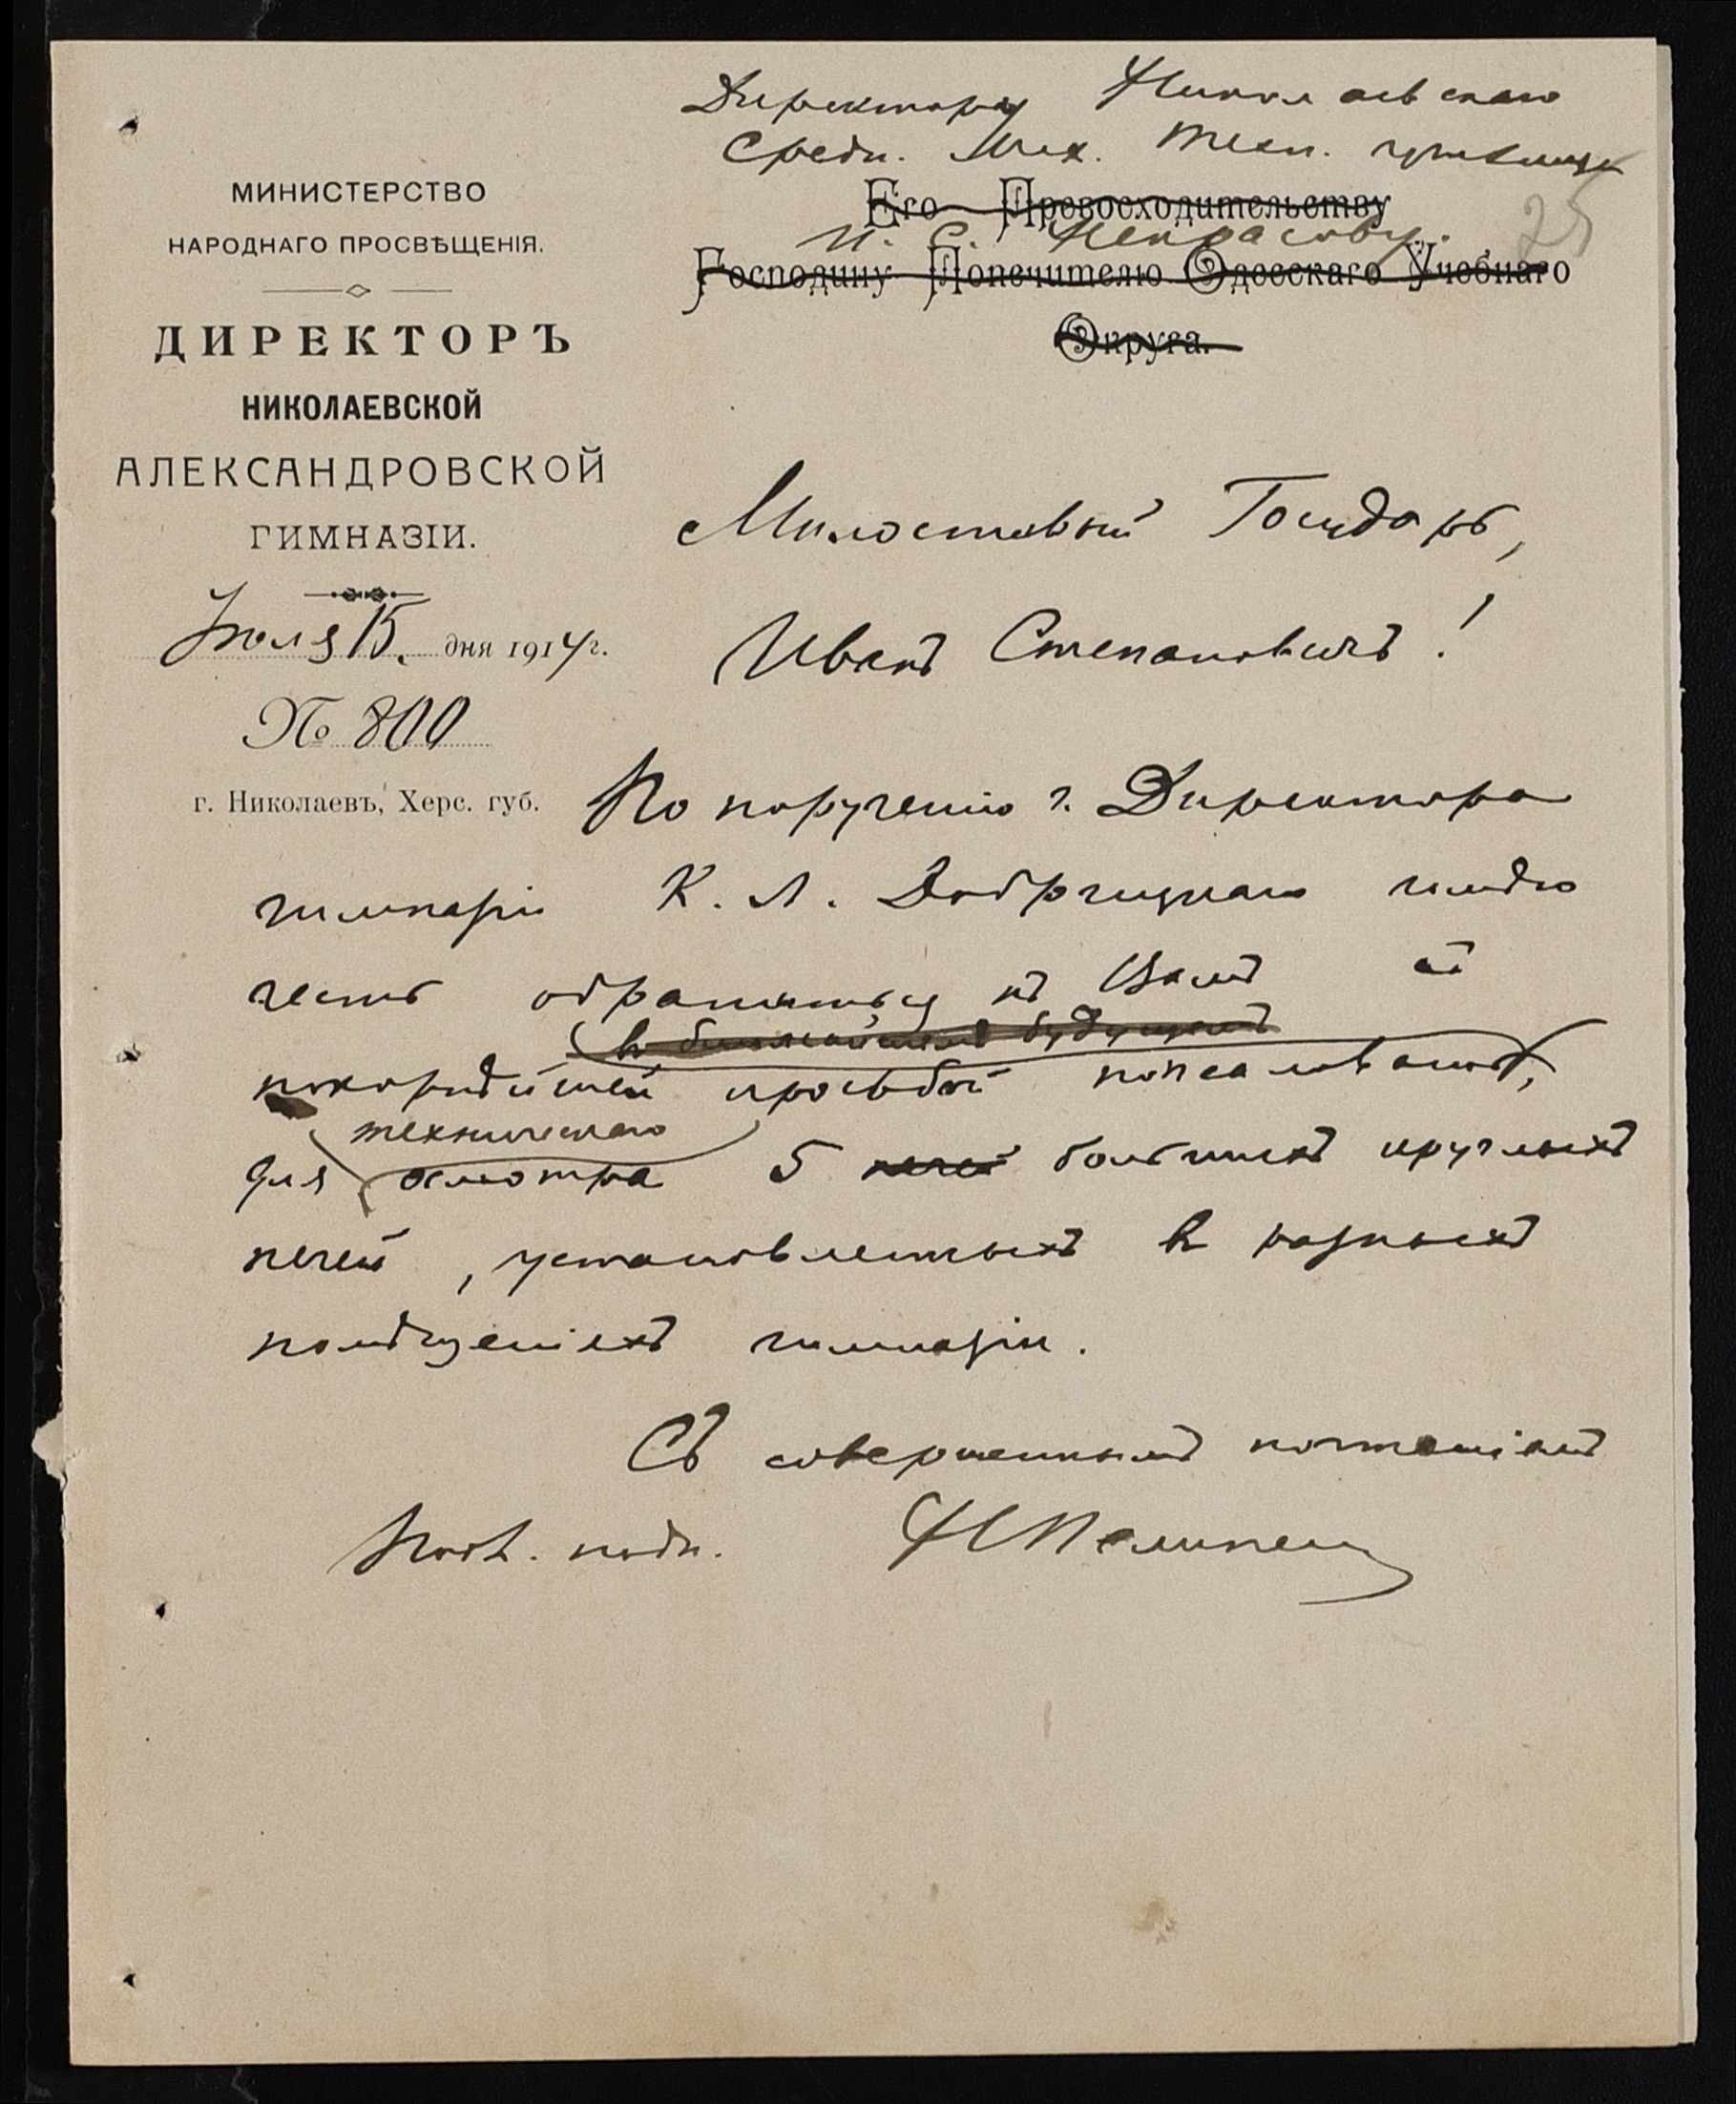 Директору Николаевскаго
Средн. Мех. Техн. училища
Его Превосходительству
И. С. Некрасову.
25
Господину Попечителю Одесскаго Учебнаго
Округа.
МИНИСТЕРСТВО
НАРОДНАГО ПРОСВѢЩЕНІЯ.
ДИРЕКТОРЪ
НИКОЛАЕВСКОЙ
АЛЕКСАНДРОВСКОЙ
ГИМНАЗІИ.
Іюля 15 дня 1914 г.
№ 800
г. Николаевъ, Херс. губ.
Милостивый Государь,
Иванъ Степановичъ!
По порученію г. Директора
гимназіи К. Л. имѣю
честь обратиться къ Вамъ съ
въ ближайшемъ будущемъ
покорнѣйшей просьбой пожаловать,
техническаго
для осмотра 5 печей большихъ круглыхъ
печей, установленныхъ въ разныхъ
помѣщеніяхъ гимназіи.
Съ совершеннымъ почтеніемъ
подп.